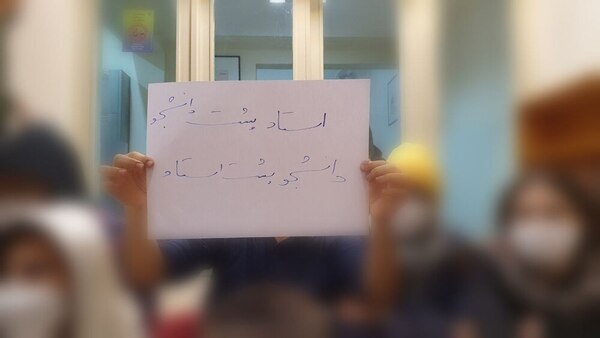 استاد پشت دانشجو
دانشجو پشت استاد